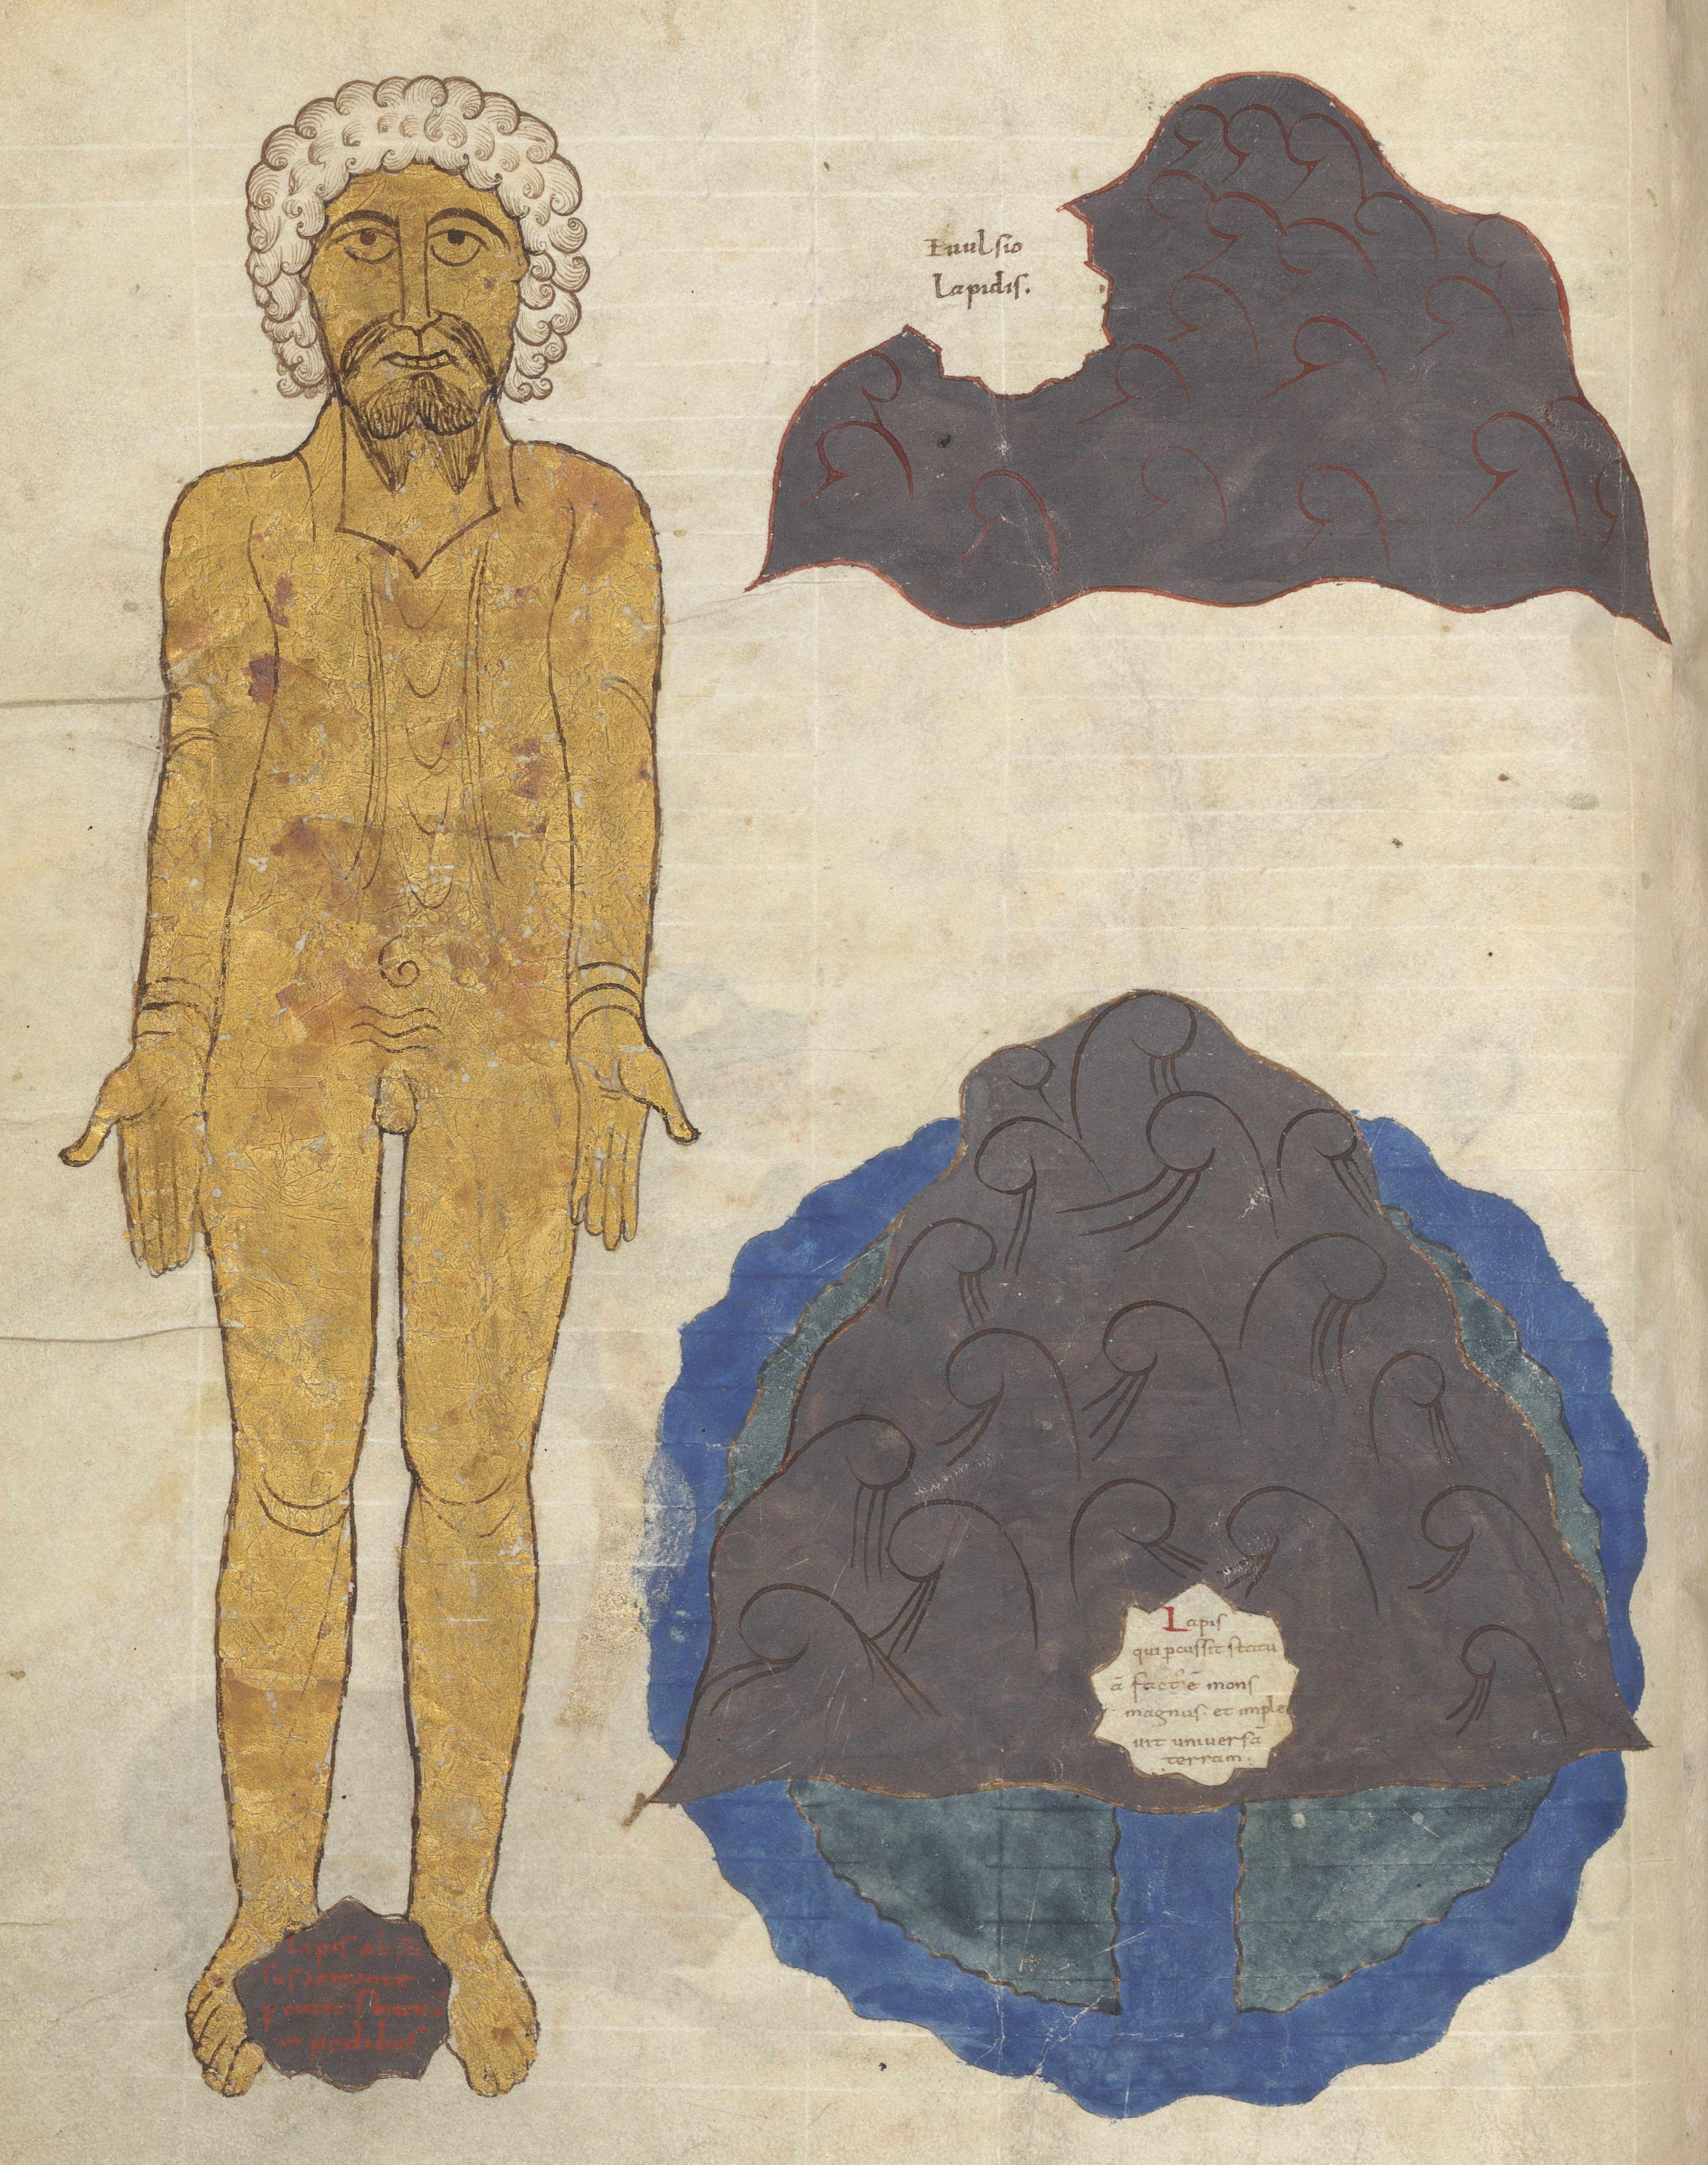 Euulsio
lapidis.
Lapis
qui pcussit statu
ā fact' ē mons
magnus. et imple
uit uniuersā
terram.
lapis abſci
sus de monte
pcutit statuā
in pedibus